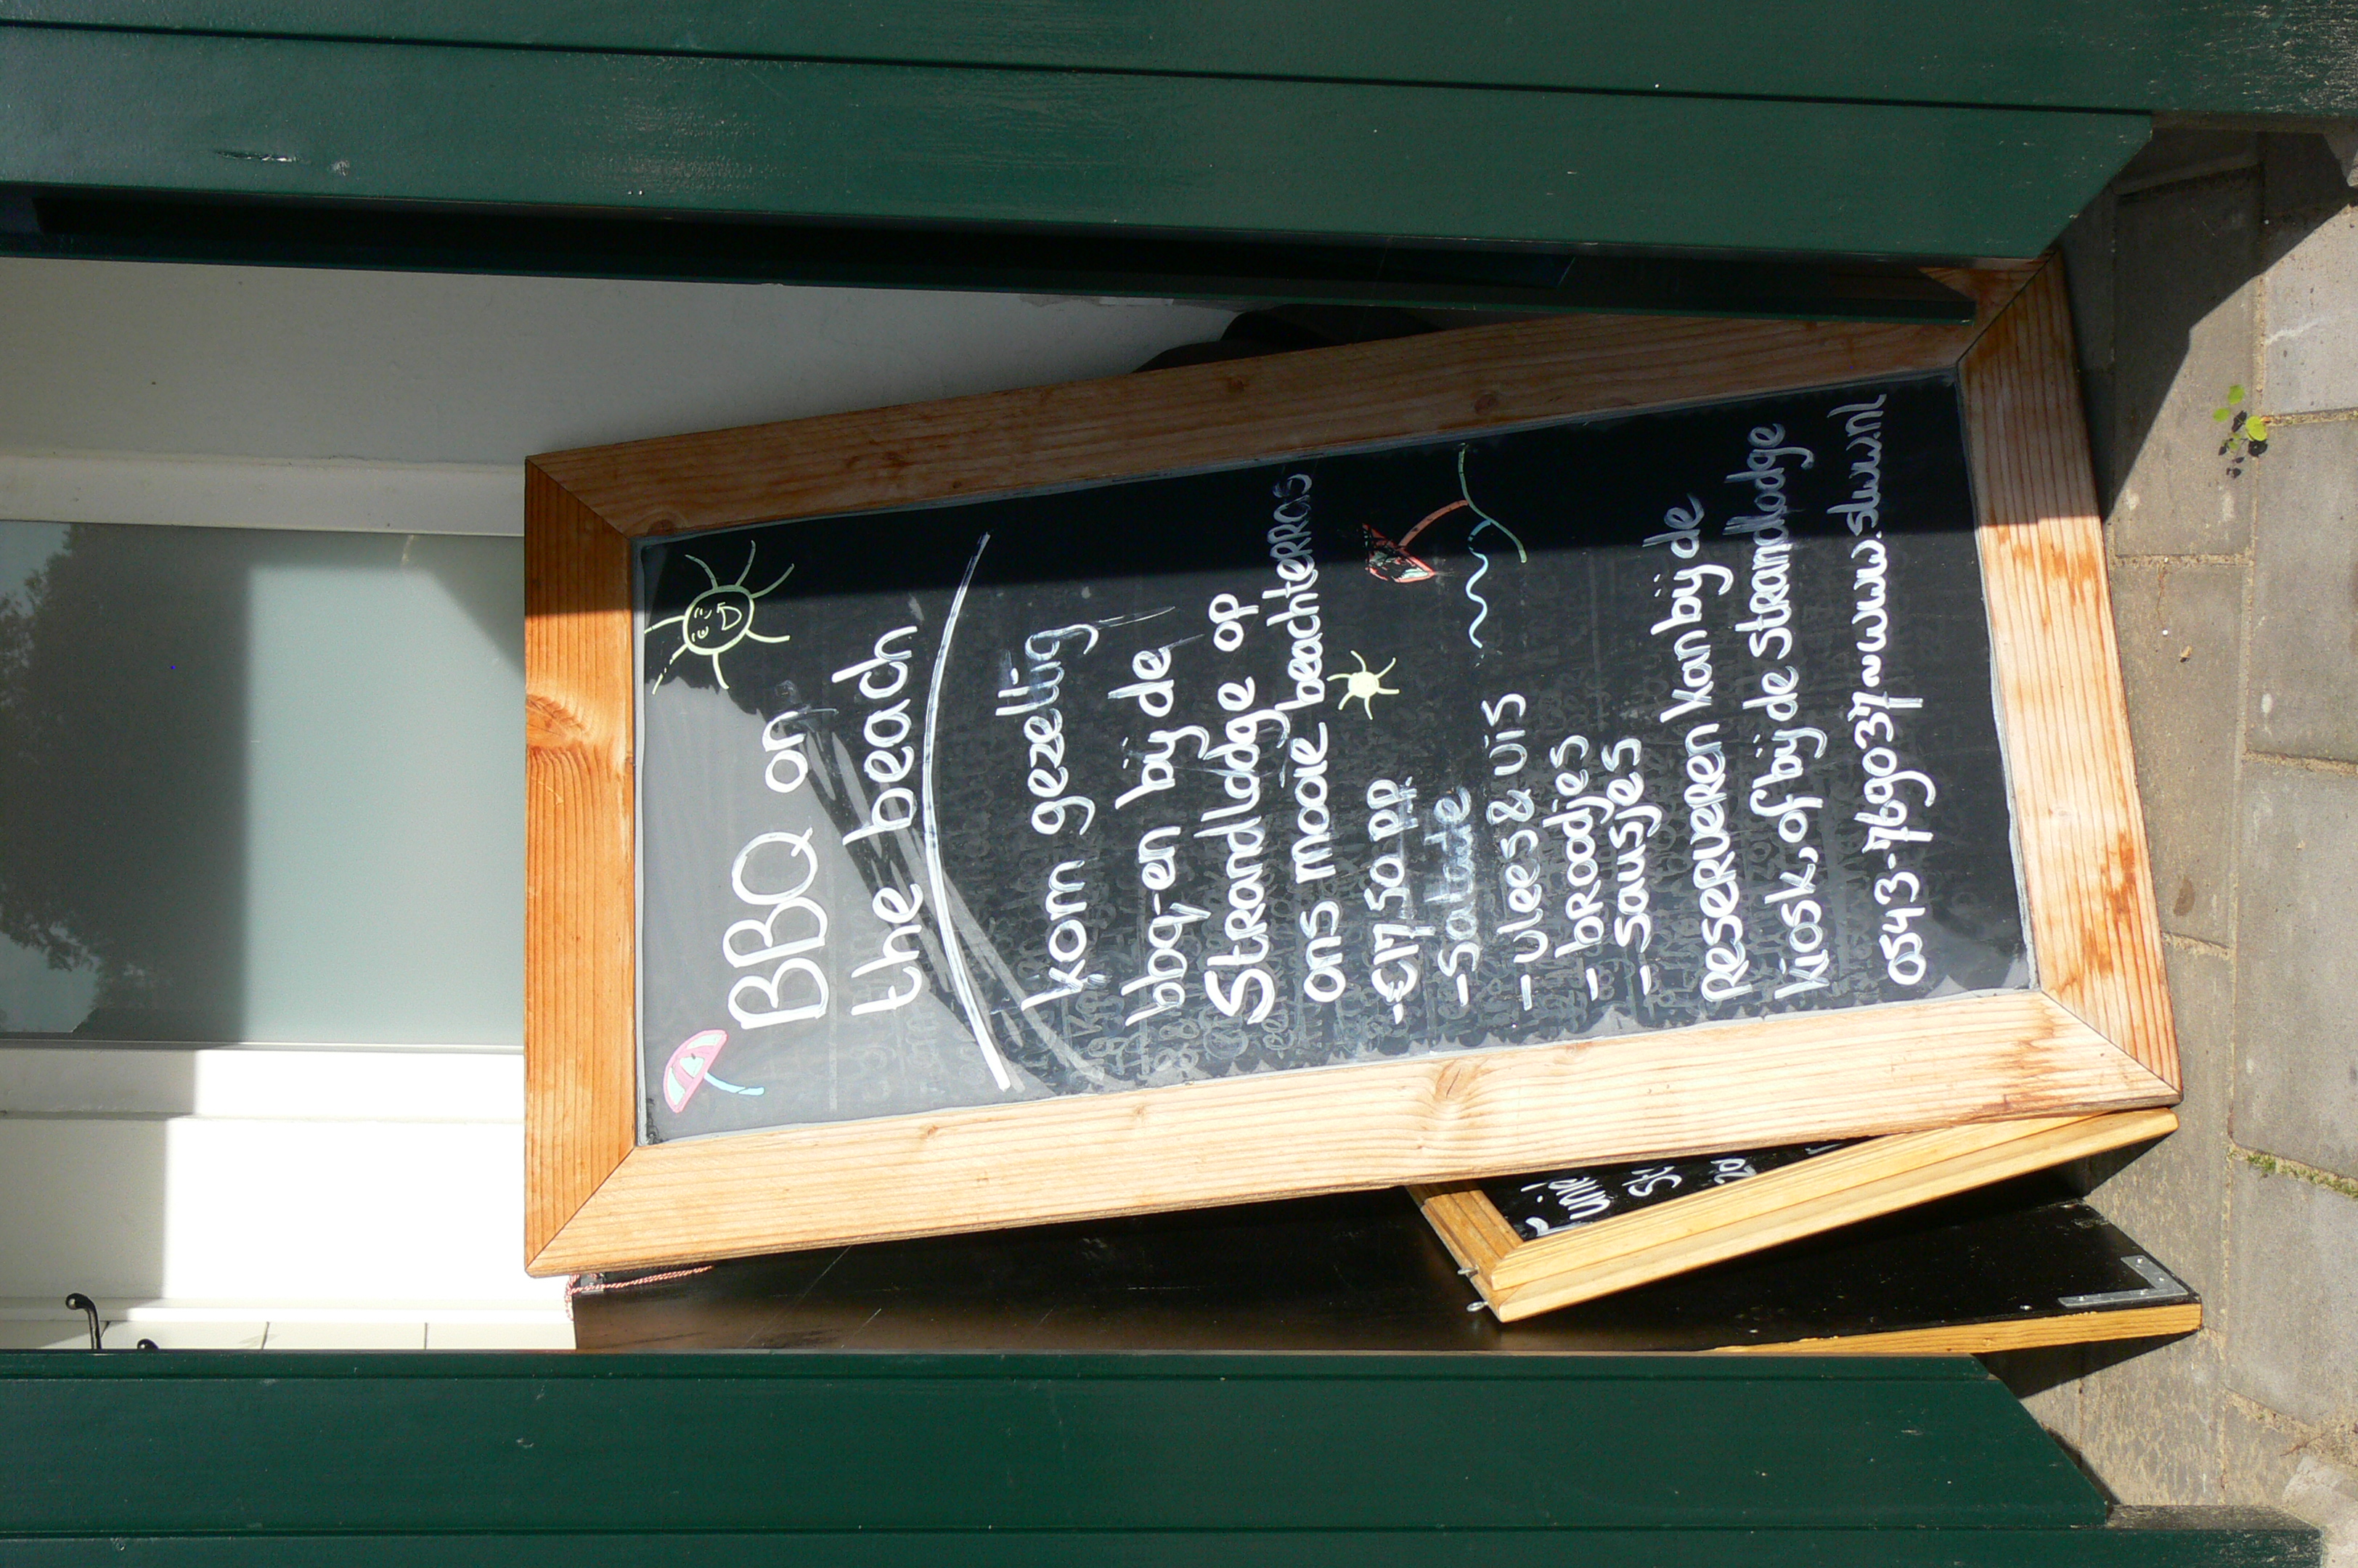 BBQ on
the beach
kom gezellig
bbq-en bij de
Strandlodge op
ons mooie beachterras
-€17,50 p.p.
- Salade
- vlees & vis
- broodjes
- sausjes
Reserveren kan bij de
kiosk, of bij de strandlodge
0543-769037~www.slw.nl